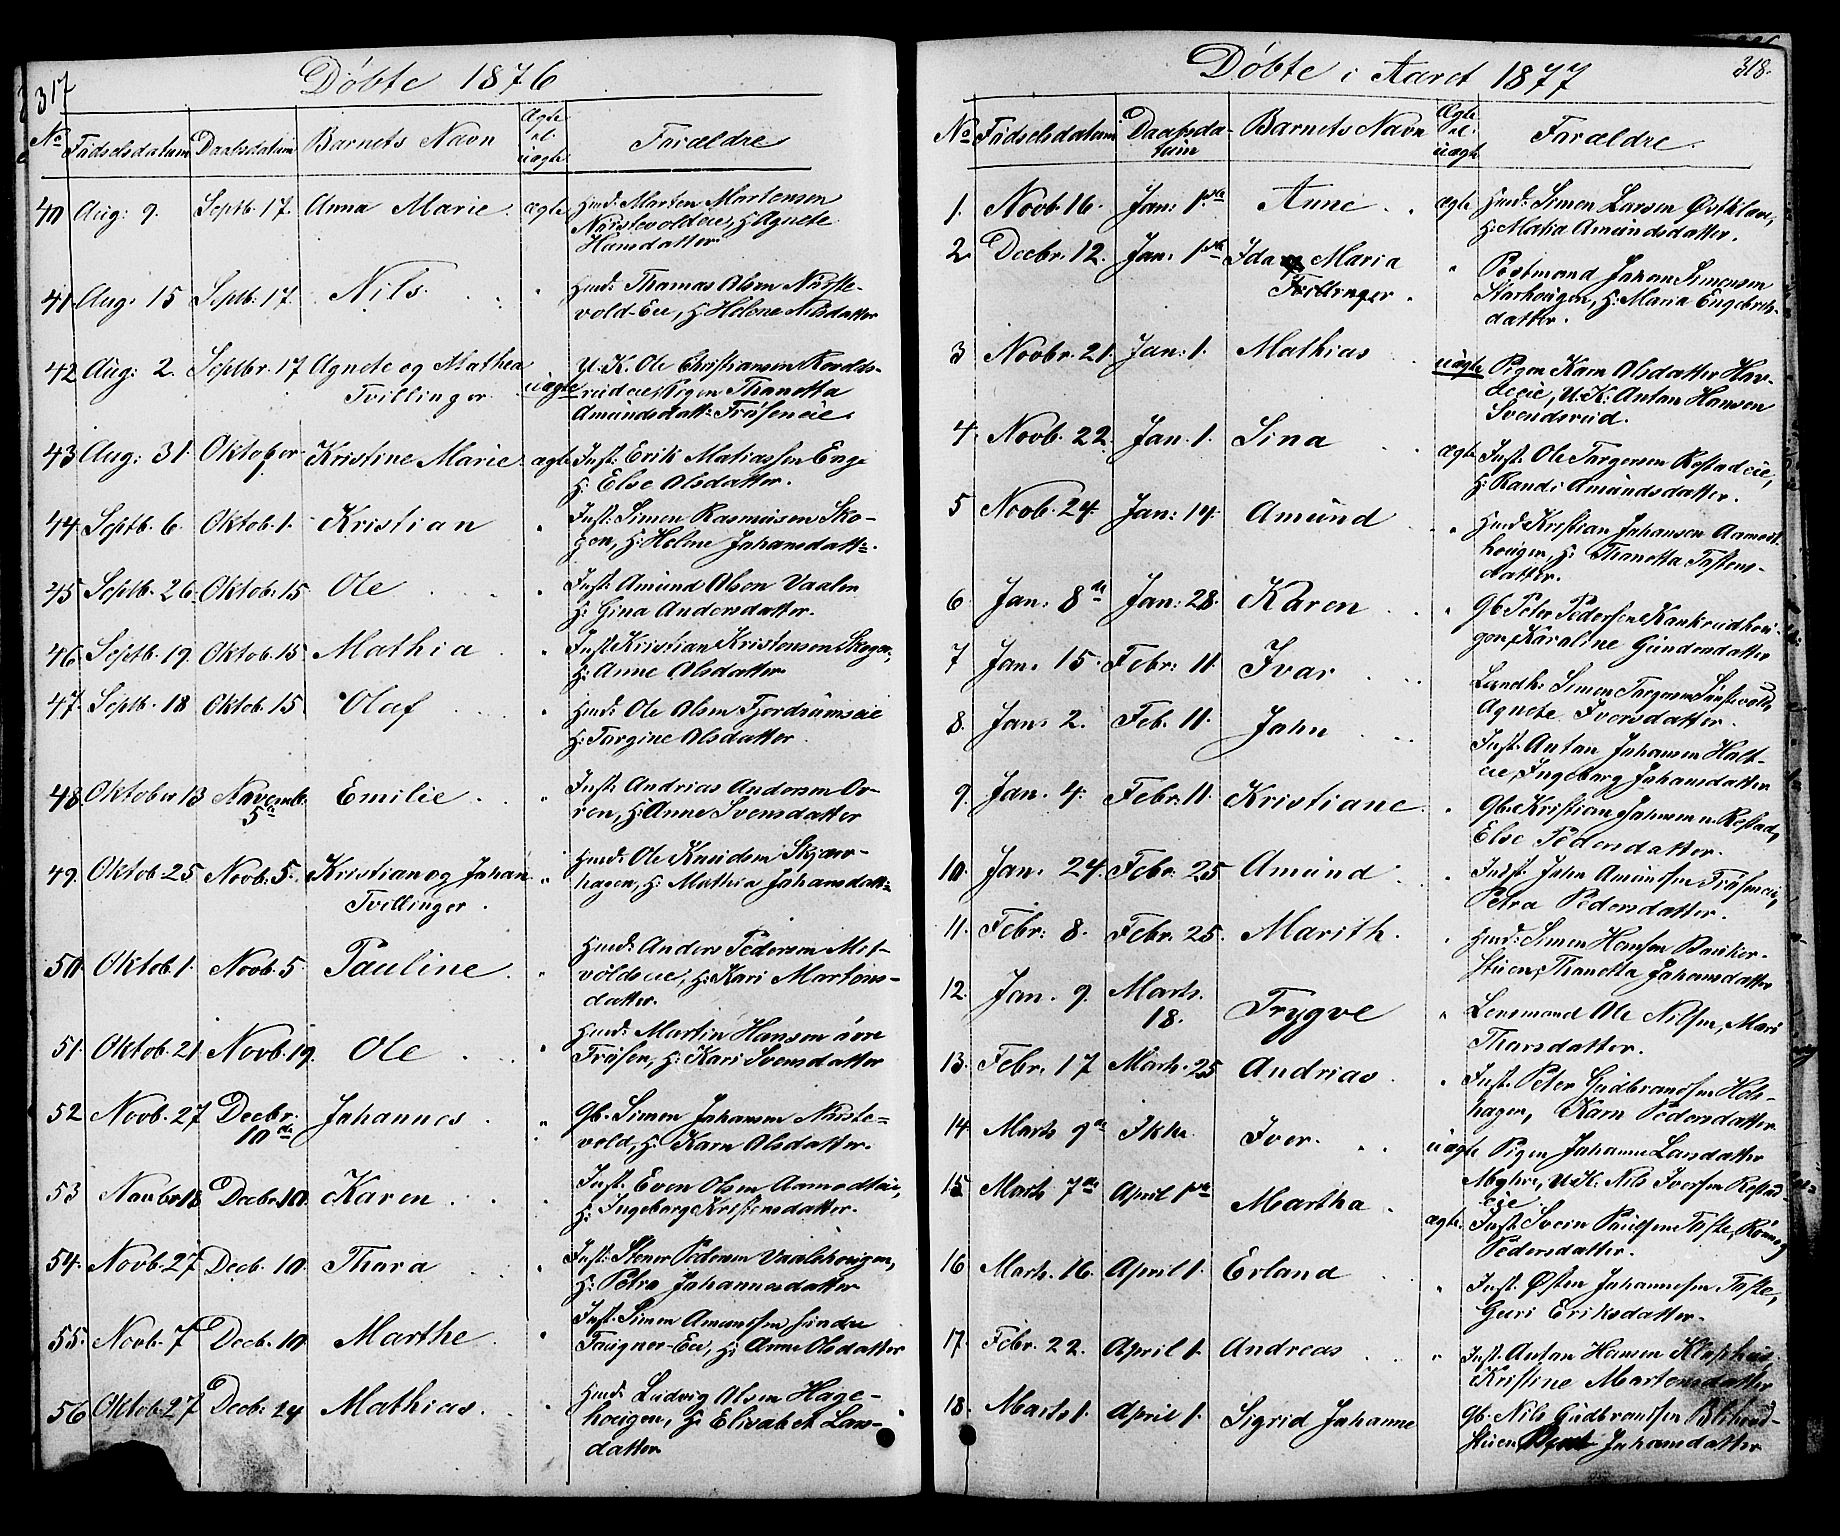 317
Döbte 1876
No Födselsdatum Daabsdatum Barnets Navn Ægte el. uægte Forældre
40 Aug: 9. Septb. 17. Anna Marie ægte Husm: Morten Mortensen
Nörstevoldeie, H: Agnete
Hansdatter
41. Aug: 15 Septb: 17. Nils. " Husm: Thomas Olsen Nörste-
vold-Eie, H: Helene Nilsdatter
42 Aug: 2. Septbr. 17 Agnete og Mathea uægte U. K. Ole Christiansen
Tvillinger eie Pigen Thonetta
Amundsdatt: Fröseneie
43 Aug: 31. Oktober Kristine Marie ægte Inst: Erik Mathiassen Enge
H: Else Olsdatter.
44. Septb. 6. Oktob. 1. Kristian " Inst: Simen Rasmusen Sko-
gen, H: Helene Johansdatt:
45 Septb. 26. Oktob. 15 Ole " Inst: Amund Olsen Vaalen
H: Gina Andersdatter.
46. Septb. 19. Oktob. 15 Mathia " Inst: Kristian Kristensen Skogen,
H: Anne Olsdatter
47. Septb. 18 Oktob. 15 Olaf " Husm: Ole Olsen Fjordrumseie
H: Torgine Olsdatter
48 Oktober 13 Novemb. 5 Emilie " Inst. Andrias Andersen
H: Anne Svensdatter
49. Oktob 25 Novb: 5. Kristian og Johan " Husm: Ole Knudsen Skjær-
Tvillinger. hagen, H: Mathia Johansdatt:
50 Oktob. 1. Novb. 5 Pauline " Husm: Anders Pedersen Mit-
voldseie, H: Kari Martens-
datter.
51. Oktob. 21 Novb. 19. Ole " Husm: Martin Hansen övre
Frösen, H: Kari Svensdatter
52 Novb. 27 Decbr. 10de Johannes " Gb. Simen Johansen Nörste-
vold, H: Karn Olsdatter.
53 Novbr. 18 Decbr. 10. Karen " Inst. Even Olsen Aamodteie,
H: Ingeborg Kristensdatter.
54. Novb. 27 Decb. 10 Thora " Inst: Stener Pedersen Vaalshougen,
H: Petra Johannesdatter
55. Novb. 7 Decb. 10 Marthe " Inst. Simen Amundsen söndre
Taugner-Eie, H: Anne Olsdatter
56 Oktob. 27 Decb: 24 Mathias " Husm: Ludvig Olsen Hage-
hougen, H: Elisabeth Lars-
datter
318.
Döbte i Aaret 1877
No Födselsdatum Daabsdatum Barnets Navn Ægte el: uægte Forældre
1. Novb. 16. Jan: 1ste Anne ægte Husm: Simen Larsen
H: Matia Amundsdatter.
2 Decbr. 12. Jan: 1ste Ida Maria " Postmand Johan Simensen
Tvillinger H: Maria Engebrets-
datter.
3 Novbr. 21. Jan: 1. Mathias uægte Pigen Karn Olsdatter
U. K: Anton Hansen
Svendsrud.
4. Novb. 22. Jan. 1. Sina ægte Inst. Ole Torgersen Rostadeie,
H: Randi Amundsdatter.
5 Novb. 24. Jan: 14. Amund " Husm: Kristian Johansen Aamodt-
hougen, H: Thonetta Tostens-
datter.
6. Jan: 8de Jan: 28. Karen " Gb. Peter Pedersen
Karoline Gundersdatter
7 Jan. 15. Febr: 11. Ivar Landh: Simen Torgersen
Agnete Iversdatter.
8. Jan: 2. Feb. 11. John Inst. Anton Johansen Holt-
eie, Ingeborg Johansdatter
9. Jan. 4. Febr. 11. Kristiane " Gb. Kristian Johnsen n. Rostad,
Else Pedersdatter.
10. Jan. 24. Febr. 25 Amund " Indst. John Amundsen Fröseneie,
Petra Pedersdatter.
11. Febr. 8. Febr. 25. Marith. " Husm: Simen Hansen Banker-
stuen, Thonetta Johansdatter
12. Jan. 9. Marts. 18. Trygve " Lensmand Ole Nilsen, Mari
Thorsdatter.
13. Febr. 17 Marts. 25 Andrias " Inst. Peter Gudbrandsen Hols-
hagen, Karn Pedersdatter.
14. Marts 9de Ikke Iver. uægte Pigen Johanne Larsdatter
Myhre, U. K. Nils Iversen Rostad-
eie
15 Marts 7de April 1ste Martha ægte. Inst. Svein Paulsen Toste, Rönnog
Pedersdatter.
16 Marts. 16. April 1. Erland " Inst. Østen Johannesen Toste,
Guri Eriksdatter.
17. Febr. 22. April 1. Andreas " Inst. Anton Hansen
Kristine Mortensdatter
18. Marts 1. April 1. Sigrid Johanne Gb. Nils Gudbrandsen
stuen Johansdatter